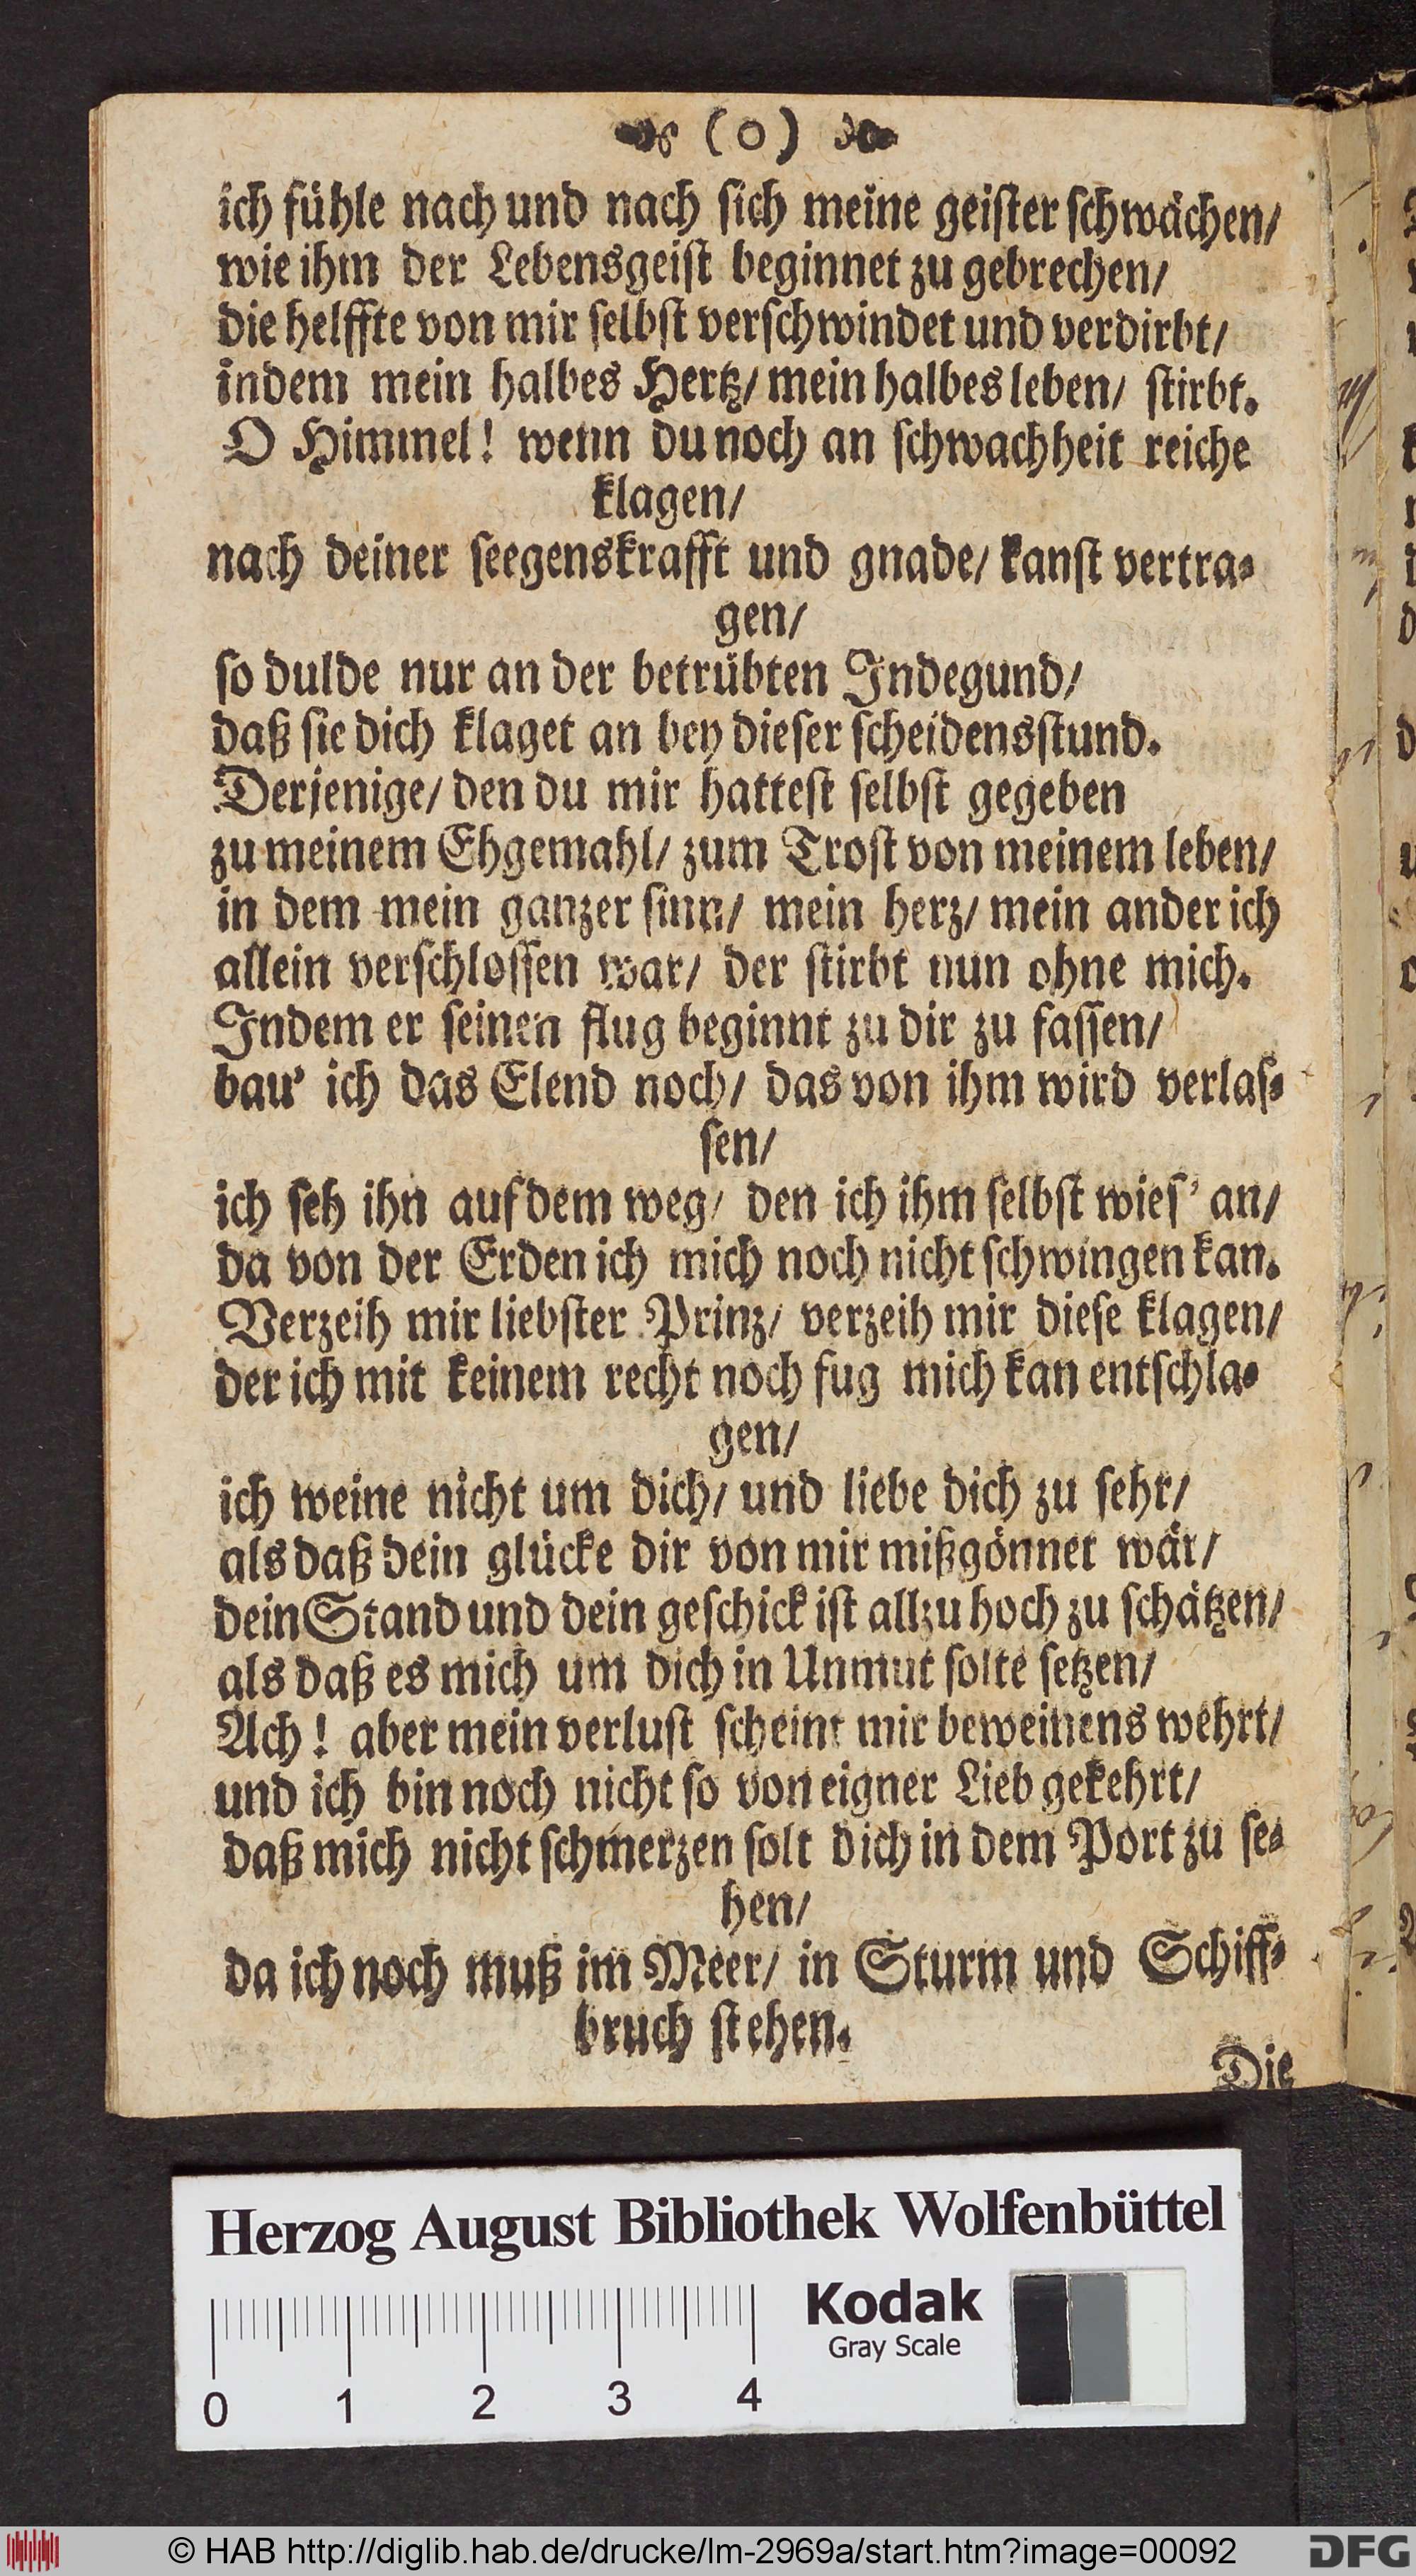 (0)
ich fühle nach und nach sich meine geister schwächen/
wie ihm der Lebensgeist beginnet zu gebrechen/
die helffte von mir selbst verschwindet und verdirbt/
indem mein halbes Hertz/ mein halbes leben/ stirbt.
O Himmel! wenn du noch an schwachheit reiche
klagen/
nach deiner seegenskrafft und gnade/ kanst vertra-
gen/
so dulde nur an der betrübten Indegund/
daß sie dich klaget an bey dieser scheidensstund.
Derjenige/ den du mir hattest selbst gegeben
zu meinem Ehgemahl/ zum Trost von meinem leben/
in dem mein ganzer sinn/ mein herz/ mein ander ich
allein verschlossen war/ der stirbt nun ohne mich.
Indem er seinen flug beginnt zu dir zu fassen/
bau' ich das Elend noch/ das von ihm wird verlas-
sen/
ich seh ihn auf dem weg/ den ich ihm selbst wies' an/
da von der Erden ich mich noch nicht schwingen kan.
Verzeih mir liebster Prinz/ verzeih mir diese klagen/
der ich mit keinem recht noch fug mich kan entschla-
gen/
ich weine nicht um dich/ und liebe dich zu sehr/
als daß dein glücke dir von mir mißgönnet wär/
dein Stand und dein geschick ist allzu hoch zu schätzen/
als daß es mich um dich in Unmut solte setzen/
Ach! aber mein verlust scheint mir beweinens wehrt/
und ich bin noch nicht so von eigner Lieb gekehrt/
daß mich nicht schmerzen solt dich in dem Port zu se-
hen/
da ich noch muß im Meer/ in Sturm und Schiff-
bruch stehen.
Die
Herzog August Bibliothek Wolfenbüttel
Kodak
Gray Scale
0 1 2 3 4
© HAB http://diglib.hab.de/drucke/lm-2969a/start.htm?image=00092
DFG